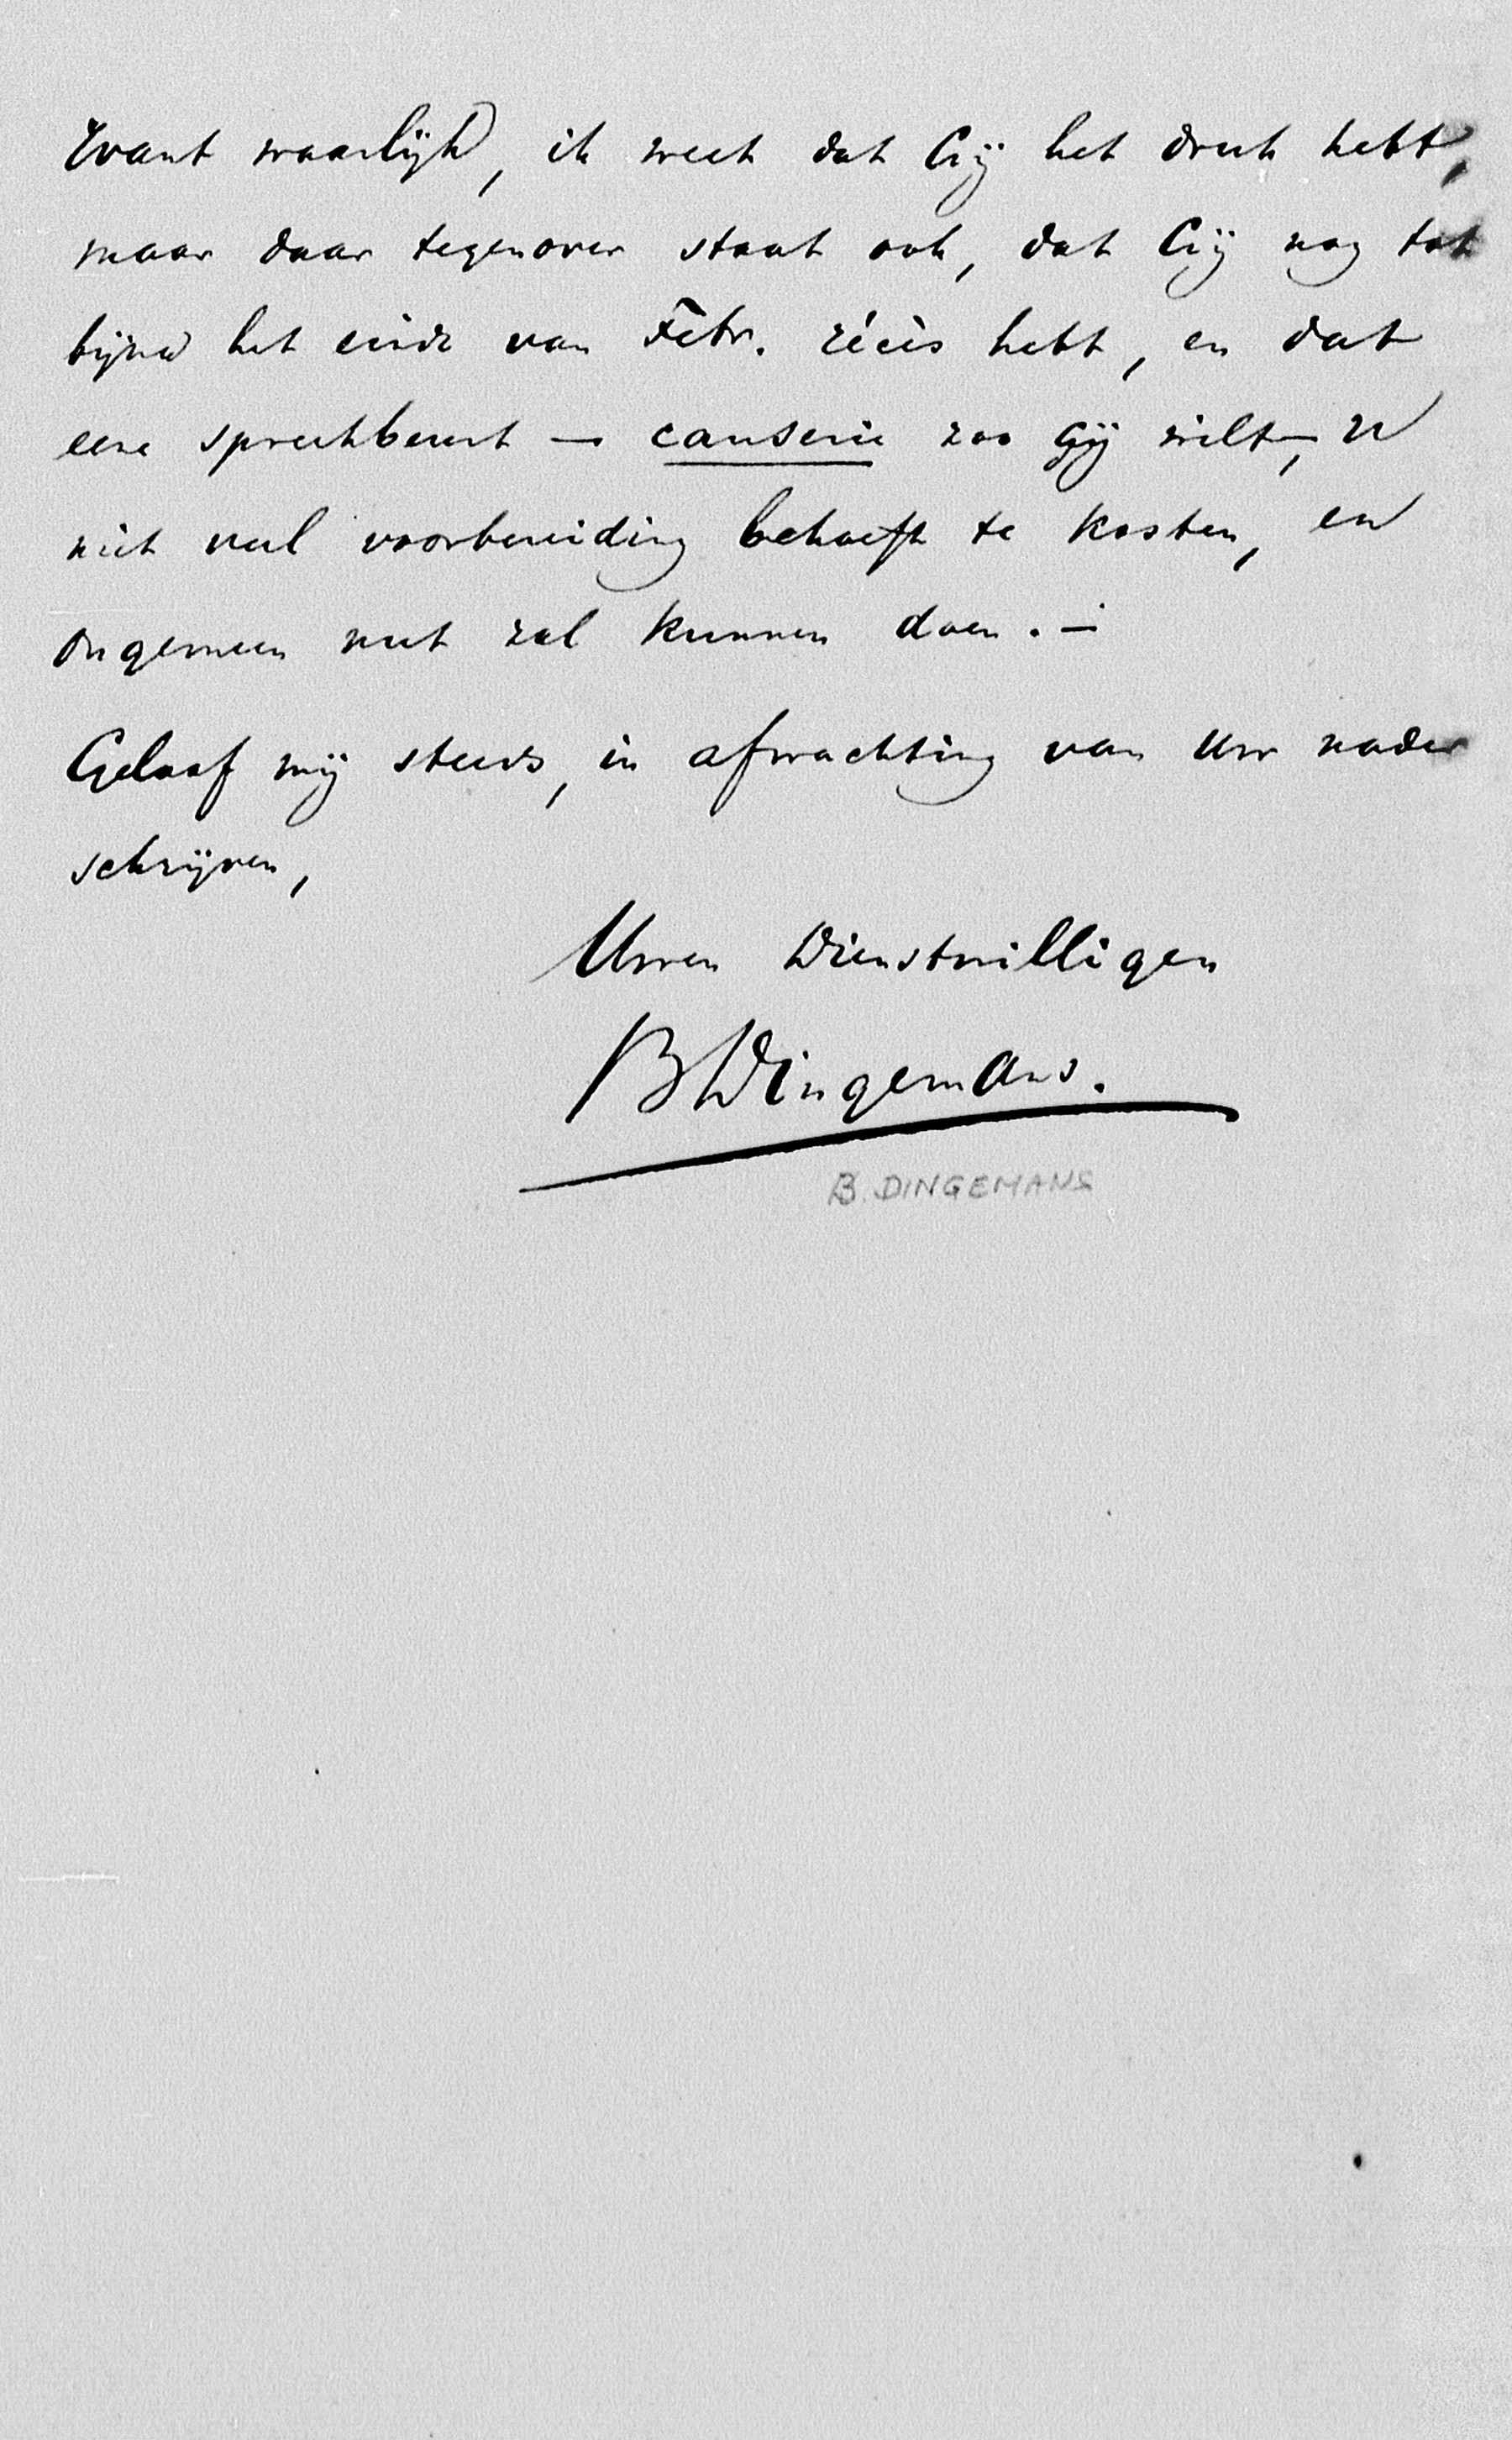 Want waarlijk, ik weet dat Gij het druk hebt,
maar daar tegenover staat ook, dat Gij nog tot
bijna het einde van Febr. récès hebt, en dat
eene spreekbeurt — causerie zoo Gij wilt —, U
niet veel voorbereiding behoeft te kosten, en
ongemeen nut zal kunnen doen. —
Geloof mij steeds, in afwachting van Uw nader
schrijven,
Uwen Dienstwilligen
BDingemans.
B. DINGEMANS